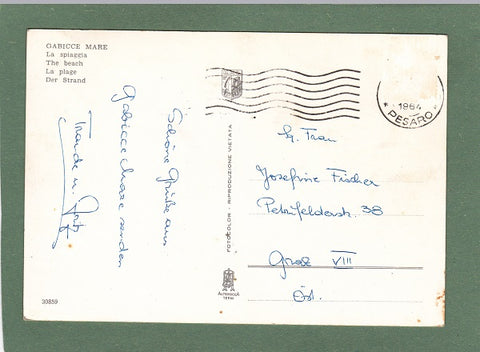 GABICCE MARE
La spiaggia
The beach
La plage
Der Strand
Schöne Grüße aus
Gabicce Mare senden
Traude u. Fritz
30859
FOTOCOLOR - RIPRODUZIONE VIETATA
1964
* PESARO *
Frau
Josefine Fischer
38
Graz VIII
Öst.